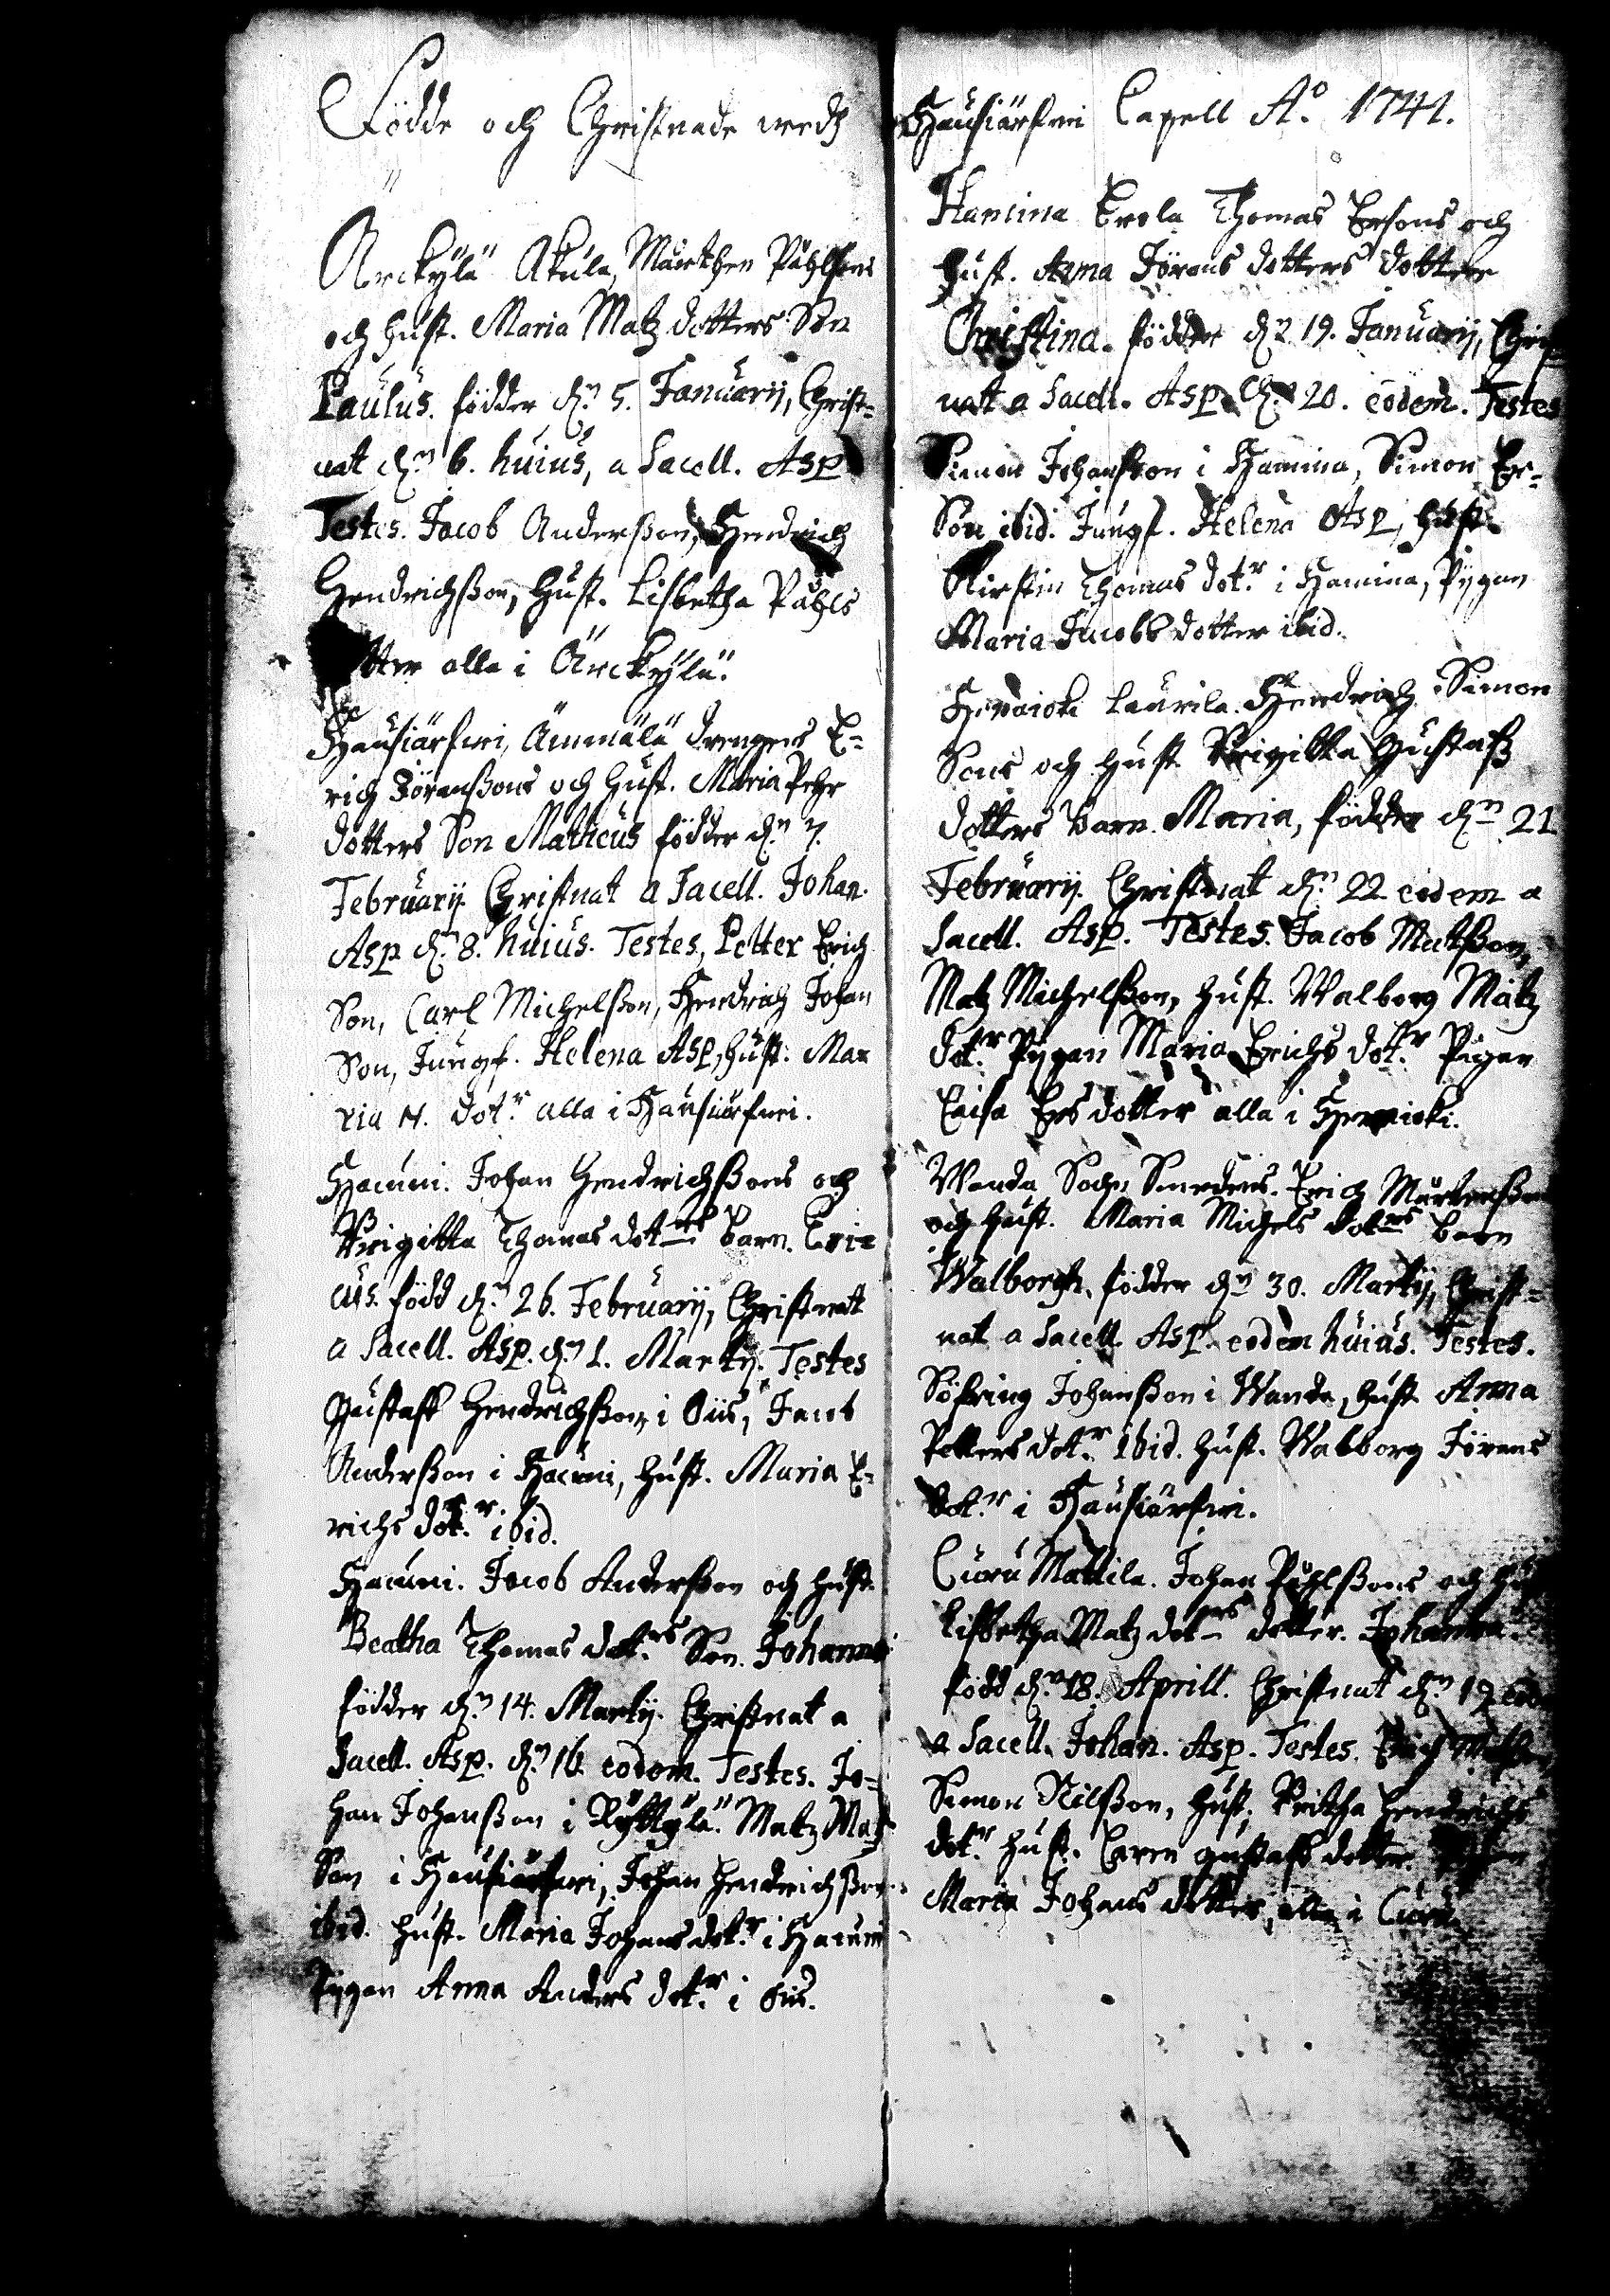 Födde och Christnade wedh
Ärckylä Akula, Mårthen Påhlsons
och hust. Maria Matz dotters Son
Paulus. födder dn 5. Januarij, Christ=
nat dn 6. huius, a Sacell. Asp
Testes. Jacob Andersson, Hendrich
Hendrichsson, hust. Lisbetha Påhls
tter alla i Ärckylä.
Hausiärfwi, Ämmälä drengens E=
rich Jöranssons och hust. Maria Pehr
dotters Son Matheus födder dn 7.
Februarij Christnat a Sacell. Johan.
Asp dn 8. huius. Testes, Petter Erich
Son, Carl Michelsson, Hendrich Johan
Son, Jungf. Helena Asp, hust. Ma=
ria M. dotr alla i Hausiärfwi.
Hacuni. Johan Hendrichssons och
Brigitta Thomas dotrs barn. Eri=
cus. född dn 26. Februarij, Christnat
a Sacell. Asp. dn 1. Martij. Testes
Gustaff Hendrichsson i Oiis, Jacob
Andersson i Hacuni, hust. Maria E=
richs dotr ibid.
Hacuni. Jacob Andersson och hust.
Beatha Thomas dotrs Son. Johannes
födder dn 14. Martij. Christnat a
Sacell. Asp. dn 16. eodem. Testes. Jo=
han Johansson i Ryttylä. Matz Matz
Son i Hausiärfwi, Johan Hendrichsson
ibid. hust. Maria Johans dotr i Hacuni
Pygan Anna Anders dotr i Oiis.
Hausiärfwi Capell Ao. 1741.
Hamina Erola Thomas Ersons och
hust. Anna Jörans dotters dotter
Christina. födder dn 19. Januarij, Christ
nat a Sacell. Asp dn 20. eodem. Testes
Simon Johansson i Hamina, Simon Er=
Son ibid. Jungf. Helena Asp, hust.
Kirstin Thomas dotr i Hamina, Pygan
Maria Jacobs dotter ibid.
Laurila. Hendrich Simon
Sons och hust Brigitta Gustafs
dotters barn. Maria, födder dn 21
Februarij. Christnat dn 22 eodem a
Sacell. Asp. Testes. Jacob Matsson,
Matz Michelsson, hust. Walborg Matz
dotr Pygan Maria Erichs dotr Pigan
Caisa Ers dotter alla i
Wanda Sochn Smedens. Erich Mårtensson
och hust. Maria Michels dotrs barn
Walborgh. födder dn 30. Martij, Christ=
nat a Sacell. Asp. eodem huius. Testes.
Söfring Johansson i Wanda, hust. Anna
Petters dotr ibid. hust. Walborg Jörans
dotr i Hausiärfwi.
Curu Mattila. Johan Påhlssons och hus
Lisbetha Matz dotrs dotter. Johanna.
född dn 18. Aprill. Christnat dn 19 eod
a Sacell. Johan. Asp. Testes. Erich
Simon Nilsson, hust. Britha Hendrichs
dotr hust. Caren Gustafs dotter
Maria Johans dotter, alla i Curu.